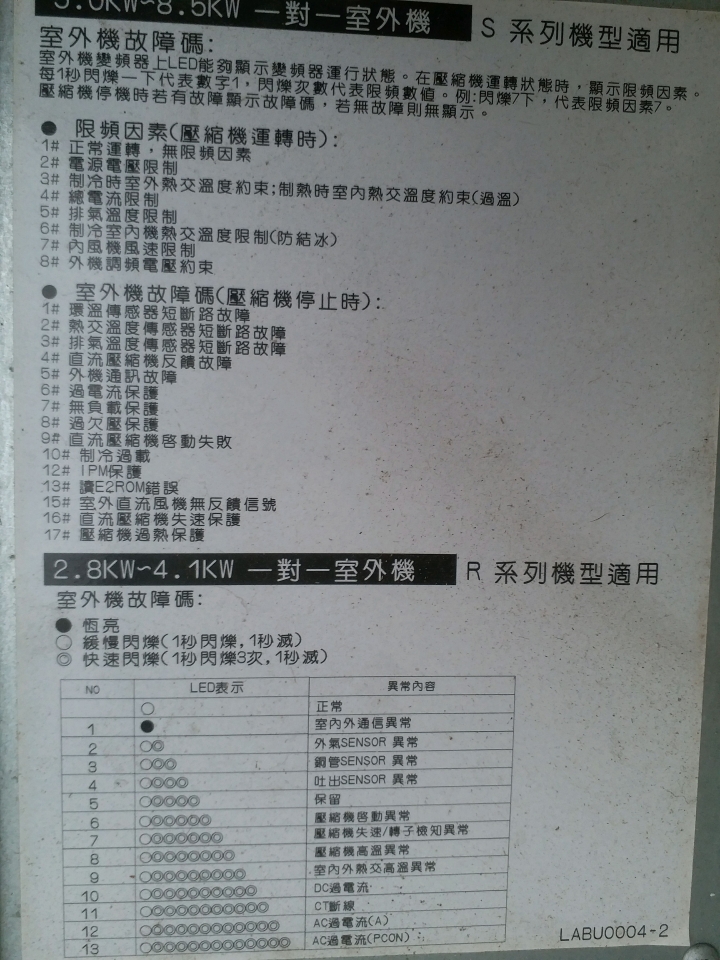 5.0KW~8.5KW 一對一室外機 S 系列機型適用
室外機故障碼:
室外機變頻器上LED能夠顯示變頻器運行狀態。在壓縮機運轉狀態時，顯示限頻因素。
每1秒閃爍一下代表數字1，閃爍次數代表限頻數值。例:閃爍7下，代表限頻因素7。
壓縮機停機時若有故障顯示故障碼，若無故障則無顯示。
● 限頻因素(壓縮機運轉時):
1# 正常運轉，無限頻因素
2# 電源電壓限制
3# 制冷時室外熱交溫度約束;制熱時室內熱交溫度約束(過溫)
4# 總電流限制
5# 排氣溫度限制
6# 制冷室內機熱交溫度限制(防結冰)
7# 內風機風速限制
8# 外機調頻電壓約束
● 室外機故障碼(壓縮機停止時):
1# 環溫傳感器短斷路故障
2# 熱交溫度傳感器短斷路故障
3# 排氣溫度傳感器短斷路故障
4# 直流壓縮機反饋故障
5# 外機通訊故障
6# 過電流保護
7# 無負載保護
8# 過欠壓保護
9# 直流壓縮機啓動失敗
10# 制冷過載
12# IPM保護
13# 讀E2ROM錯誤
15# 室外直流風機無反饋信號
16# 直流壓縮機失速保護
17# 壓縮機過熱保護
2.8KW~4.1KW 一對一室外機 R 系列機型適用
室外機故障碼:
● 恆亮
○ 緩慢閃爍(1秒閃爍,1秒滅)
◎ 快速閃爍(1秒閃爍3次,1秒滅)
NO LED表示 異常內容
○ 正常
1 ● 室內外通信異常
2 ○◎ 外氣SENSOR 異常
3 ○◎◎ 銅管SENSOR 異常
4 ○◎◎◎ 吐出SENSOR 異常
5 ○◎◎◎◎ 保留
6 ○◎◎◎◎◎ 壓縮機啓動異常
7 ○◎◎◎◎◎◎ 壓縮機失速/轉子檢知異常
8 ○◎◎◎◎◎◎◎ 壓縮機高溫異常
9 ○◎◎◎◎◎◎◎◎ 室內外熱交高溫異常
10 ○◎◎◎◎◎◎◎◎◎ DC過電流
11 ○◎◎◎◎◎◎◎◎◎◎ CT斷線
12 ○◎◎◎◎◎◎◎◎◎◎◎ AC過電流(A)
13 ○◎◎◎◎◎◎◎◎◎◎◎◎ AC過電流(PCON)
LABU0004-2